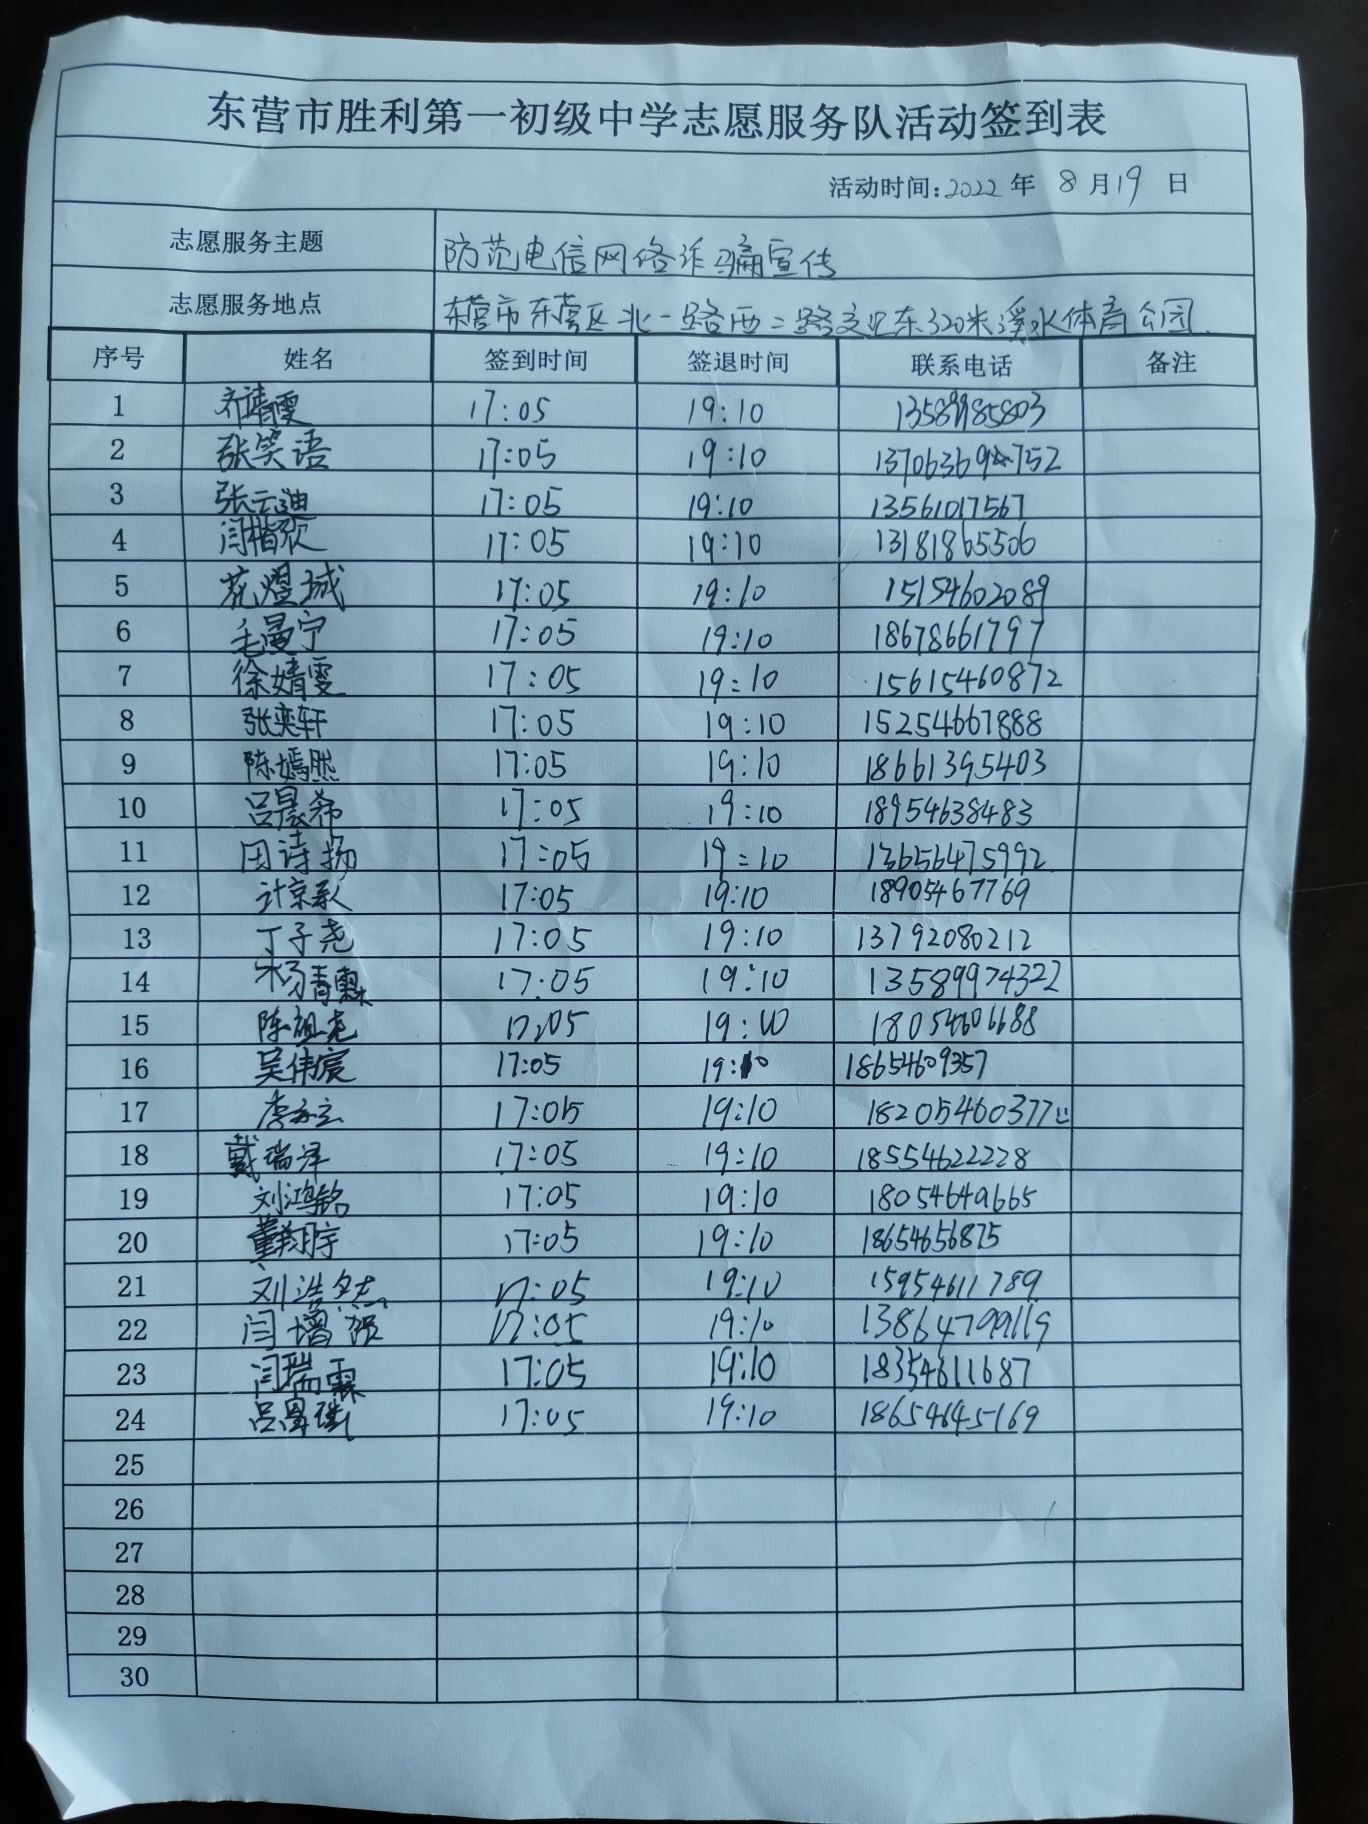 东营市胜利第一初级中学志愿服务队活动签到表
活动时间:2022 年 8 月 19 日
志愿服务主题 防范电信网络诈骗宣传
志愿服务地点 东营市东营区北一路西二路交汇东320米溪水体育公园
序号 姓名 签到时间 签退时间 联系电话 备注
1 齐靖雯 17:05 19:10 13589985803
2 张笑语 17:05 19:10
3 张云迪 17:05 19:10 13561017567
4 闫楷欣 17:05 19:10 13181865506
5 花煜城 17:05 19:10 15154602089
6 毛曼宁 17:05 19:10 18678661797
7 徐婧雯 17:05 19:10 15615460872
8 张奕轩 17:05 19:10 15254667888
9 陈嫣然 17:05 19:10 18661395403
10 吕晨希 17:05 19:10 18954638483
11 田诗扬 17:05 19:10 13656475992
12 计京承 17:05 19:10 18905467769
13 丁子尧 17:05 19:10 13792080212
14 杨青霖 17:05 19:10 13589974322
15 陈祖尧 17:05 19:10 18054606688
16 吴伟宸 17:05 19:10 18654609357
17 17:05 19:10 18205460377
18 戴瑞泽 17:05 19:10 18554622228
19 刘鸿铭 17:05 19:10 18054649665
20 董翔宇 17:05 19:10 18654656875
21 刘浩然 17:05 19:10 15954611789
22 闫增硕 17:05 19:10 13864799119
23 闫瑞霖 17:05 19:10 18354611687
24 17:05 19:10 18654645169
25
26
27
28
29
30